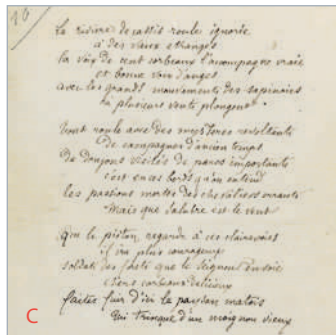 10
La rivière de cassis roule ignorée
à des vaux étranges
la voix de cent corbeaux l'accompagne vraie
et bonne voix d'anges
avec les grands mouvements des sapinaies
où plusieurs vents plongent.
Tout roule avec des mystères révoltants
De campagnes d'ancien temps
De donjons visités de parcs importants
c'est en ces bords qu'on entend
les passions mortes des chevaliers errants
Mais que salubre est le vent
Que le piéton regarde à ces clairevoies
il ira plus courageux
soldats des forêts que le Seigneur envoie
chers corbeaux délicieux
faites fuir d'ici le paysan matois
qui trinque d'un moignon vieux
C